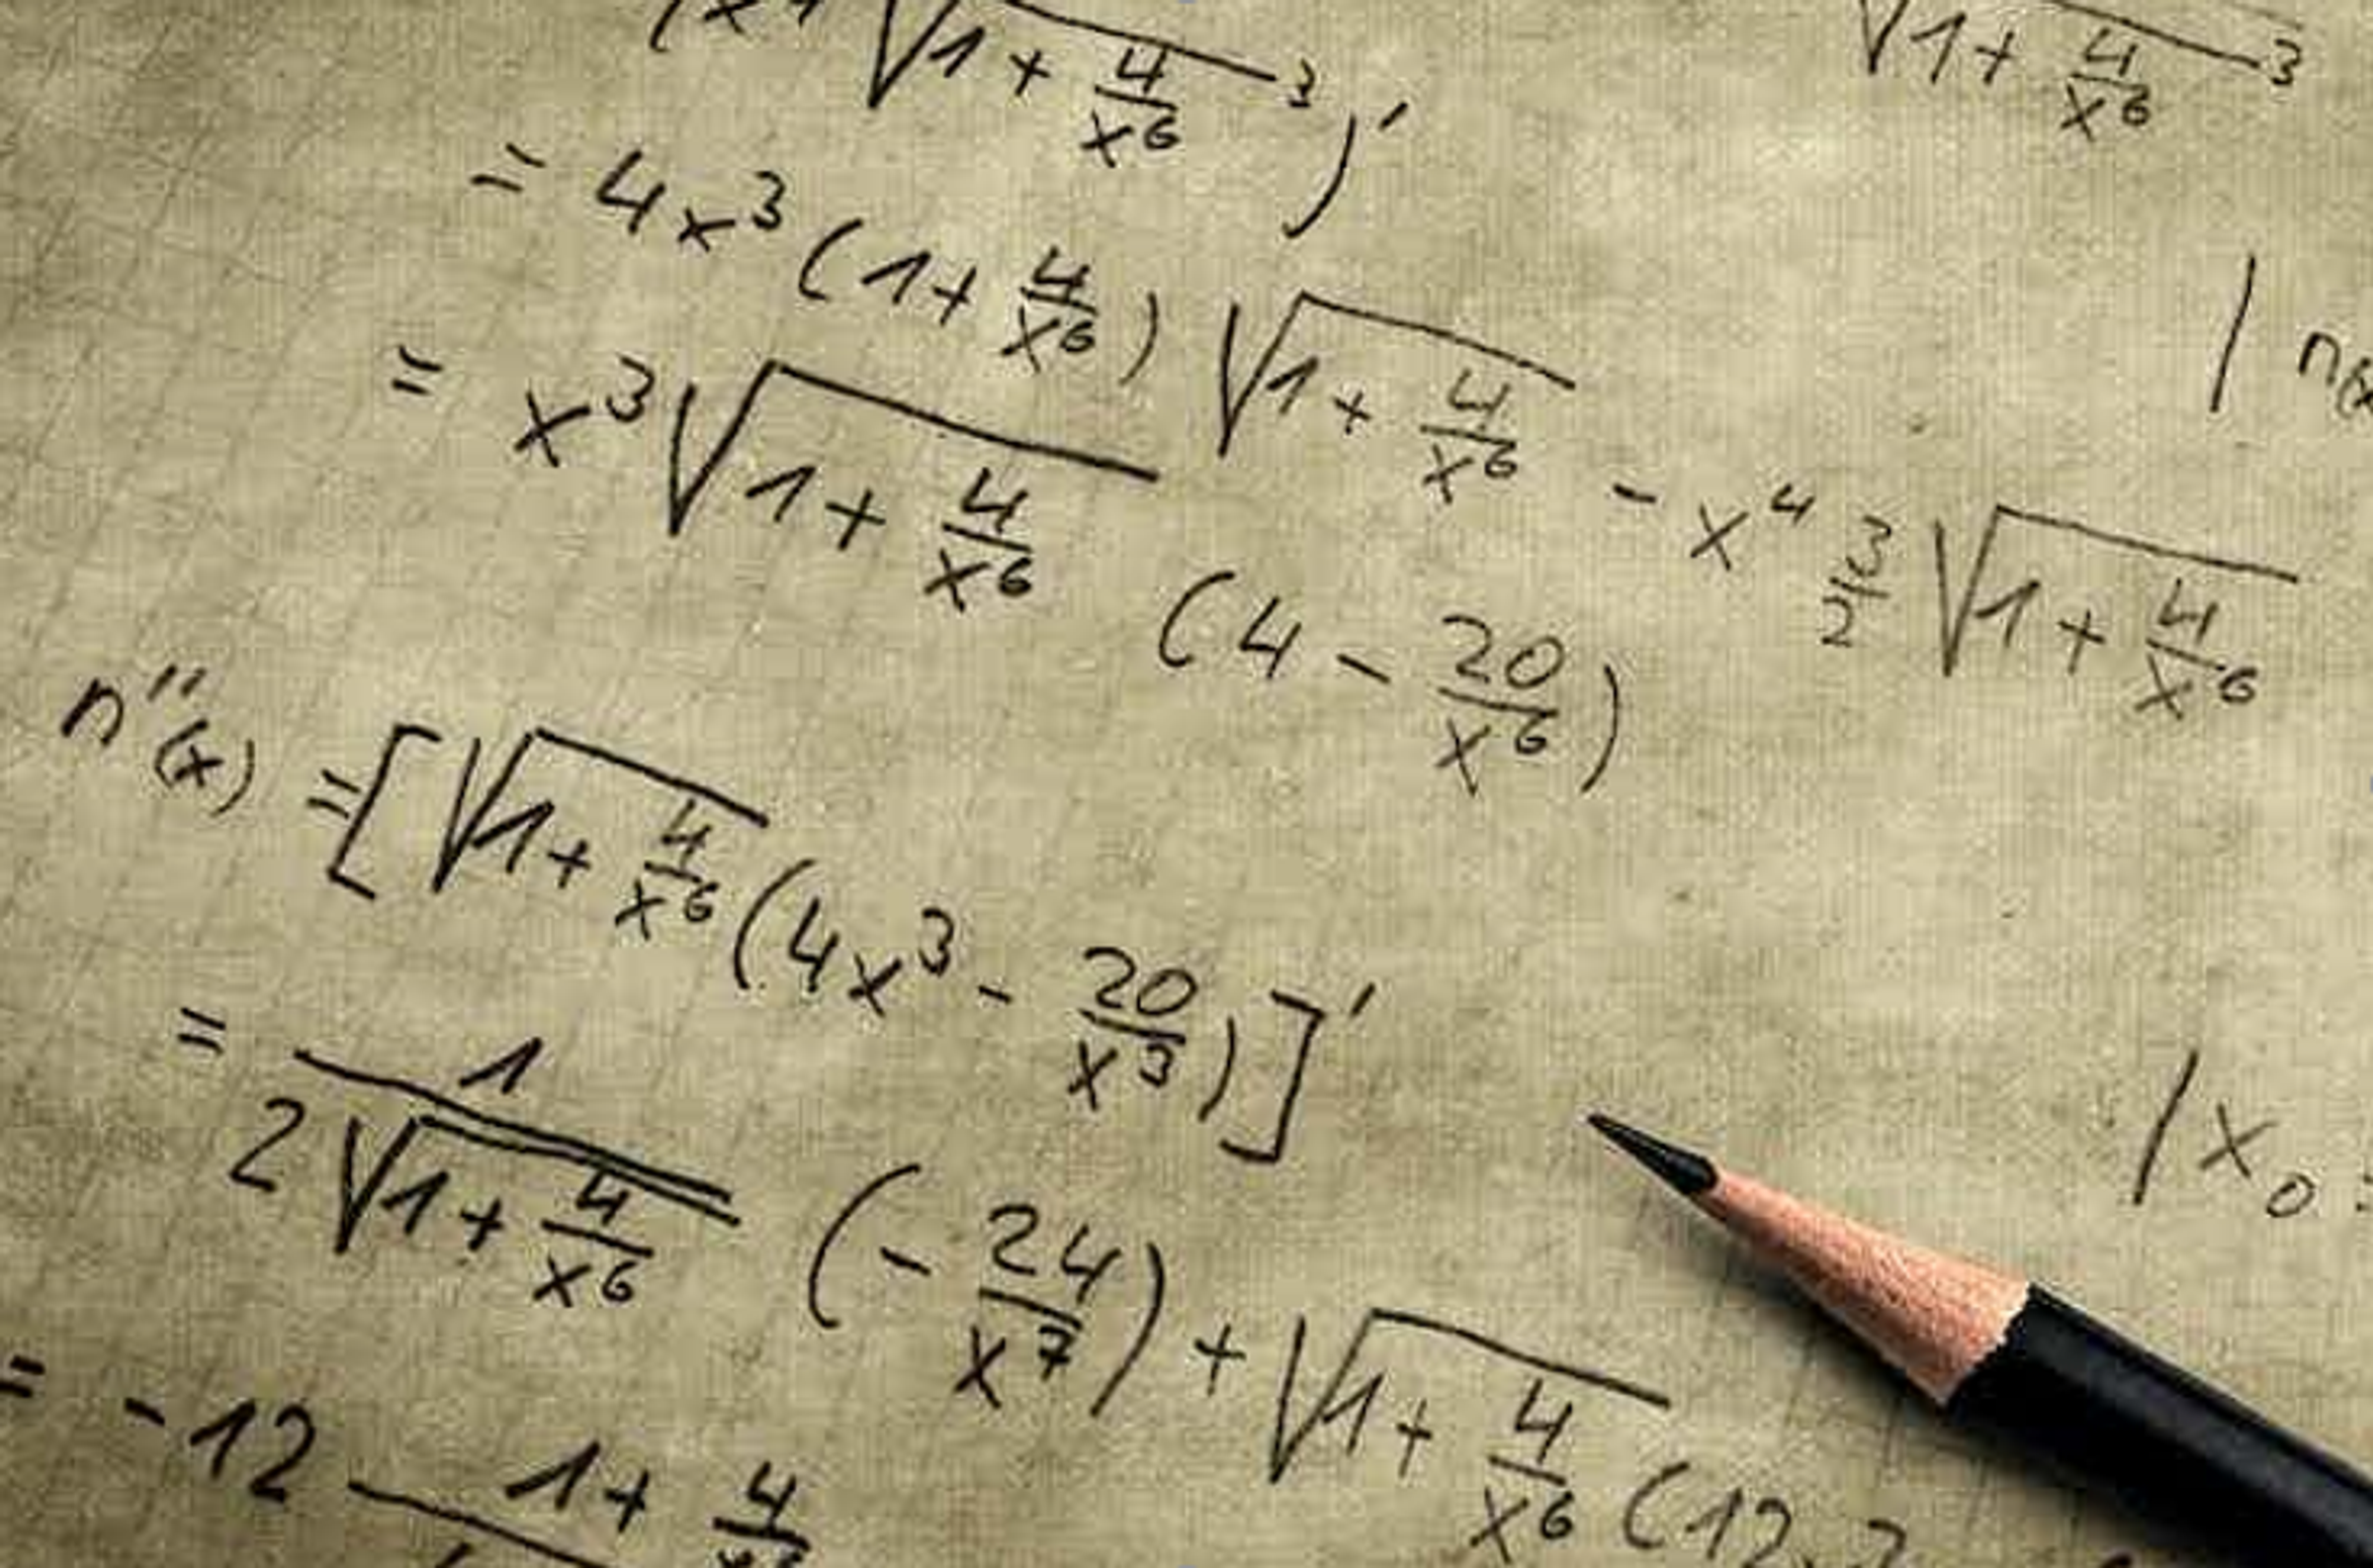 (x⁴ √(1 + 4/x⁶)³)′
√(1 + 4/x⁶)³
= 4x³ (1 + 4/x⁶) √(1 + 4/x⁶) - x⁴ 3/2 √(1 + 4/x⁶)
= x³ √(1 + 4/x⁶) (4 - 20/x⁶)
n″(x) = [√(1 + 4/x⁶) (4x³ - 20/x³)]′
| x₀
= 1/(2√(1 + 4/x⁶)) (- 24/x⁷) + √(1 + 4/x⁶) (12
= -12 1 + 4